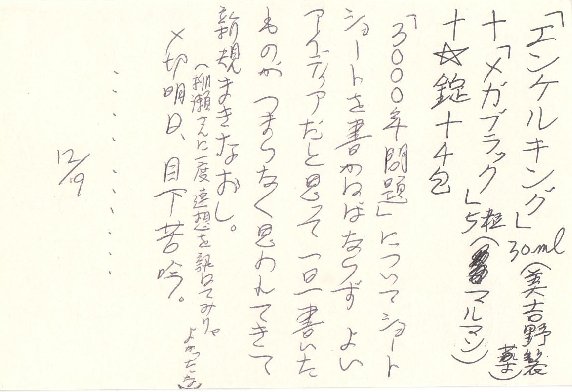 「エンケルキング」30ml（美吉野製薬）
＋「メガブラック」5粒（マルマン）
＋☆錠＋4包
「3000年問題」についてショート
ショートを書かねばならず よい
アイディアだと思って一旦書いた
ものが つまらなく思われてきて
新規まきなおし。
（柳瀬さんに一度連想を訊いてみりゃよかった）
〆切明日、目下苦吟。
............
12/19